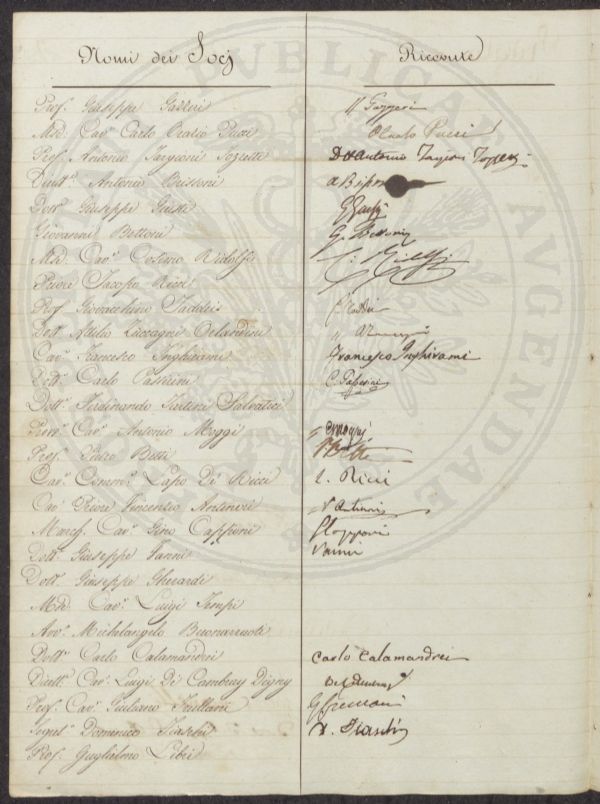 Nomi dei Socj Ricevute
Prof. Giuseppe Gazzeri G. Gazzeri
Mse. Cav. Carlo Orazio Pucci O Carlo Pucci
Prof. Antonio Targioni Tozzetti Antonio Targioni Tozzetti
Dirett. Antonio Brissoni
Dott. Giuseppe Giusti
Giovanni Bettoni G. Bettoni
Mse. Cav. Cosimo Ridolfi C. Ridolfi
Priore Jacopo Ricci
Prof. Giovacchino Taddei G. Taddei
Dott. Attilio Zuccagni Orlandini
Cav. Francesco Inghirami Francesco Inghirami
Dott. Carlo Passerini C. Passerini
Dott. Ferdinando Tartini Salvatici
Cav. Antonio Maggi
Prof. Pietro Betti P. Betti
Cav. Comm. Lapo De' Ricci L. Ricci
Cav. Priore Vincenzio Antinori V. Antinori
March. Cav. Gino Capponi G Capponi
Dott. Giuseppe Vanni Vanni
Dott. Giuseppe Gherardi
Mse. Cav. Luigi Tempi
Avv. Michelangelo Buonarroti
Dott. Carlo Calamandrei Carlo Calamandrei
Dirett. Cav. Luigi De' Cambray Digny
Prof. Cav. Giuliano Frullani G Frullani
Segret. Domenico Fiaschi D. Fiaschi
Prof. Guglielmo Libri
PUBLICAE AUGENDAE